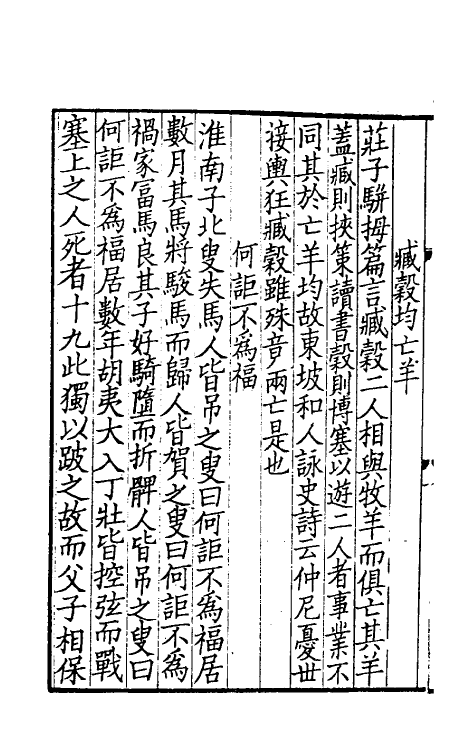 臧穀均亡羊
莊子駢拇篇言臧穀二人相與牧羊而俱亡其羊
蓋臧則挾策讀書穀則博塞以遊二人者事業不
同其於亡羊均故東坡和人詠史詩云仲尼憂世
接輿狂臧穀雖殊音兩亡是也
何詎不為福
淮南子北叟失馬人皆吊之叟曰何詎不為福居
數月其馬將駿馬而歸人皆賀之叟曰何詎不為
禍家富馬良其子好騎墮而折髀人皆吊之叟曰
何詎不為福居數年胡夷大入丁壯皆控弦而戰
塞上之人死者十九此獨以跛之故而父子相保